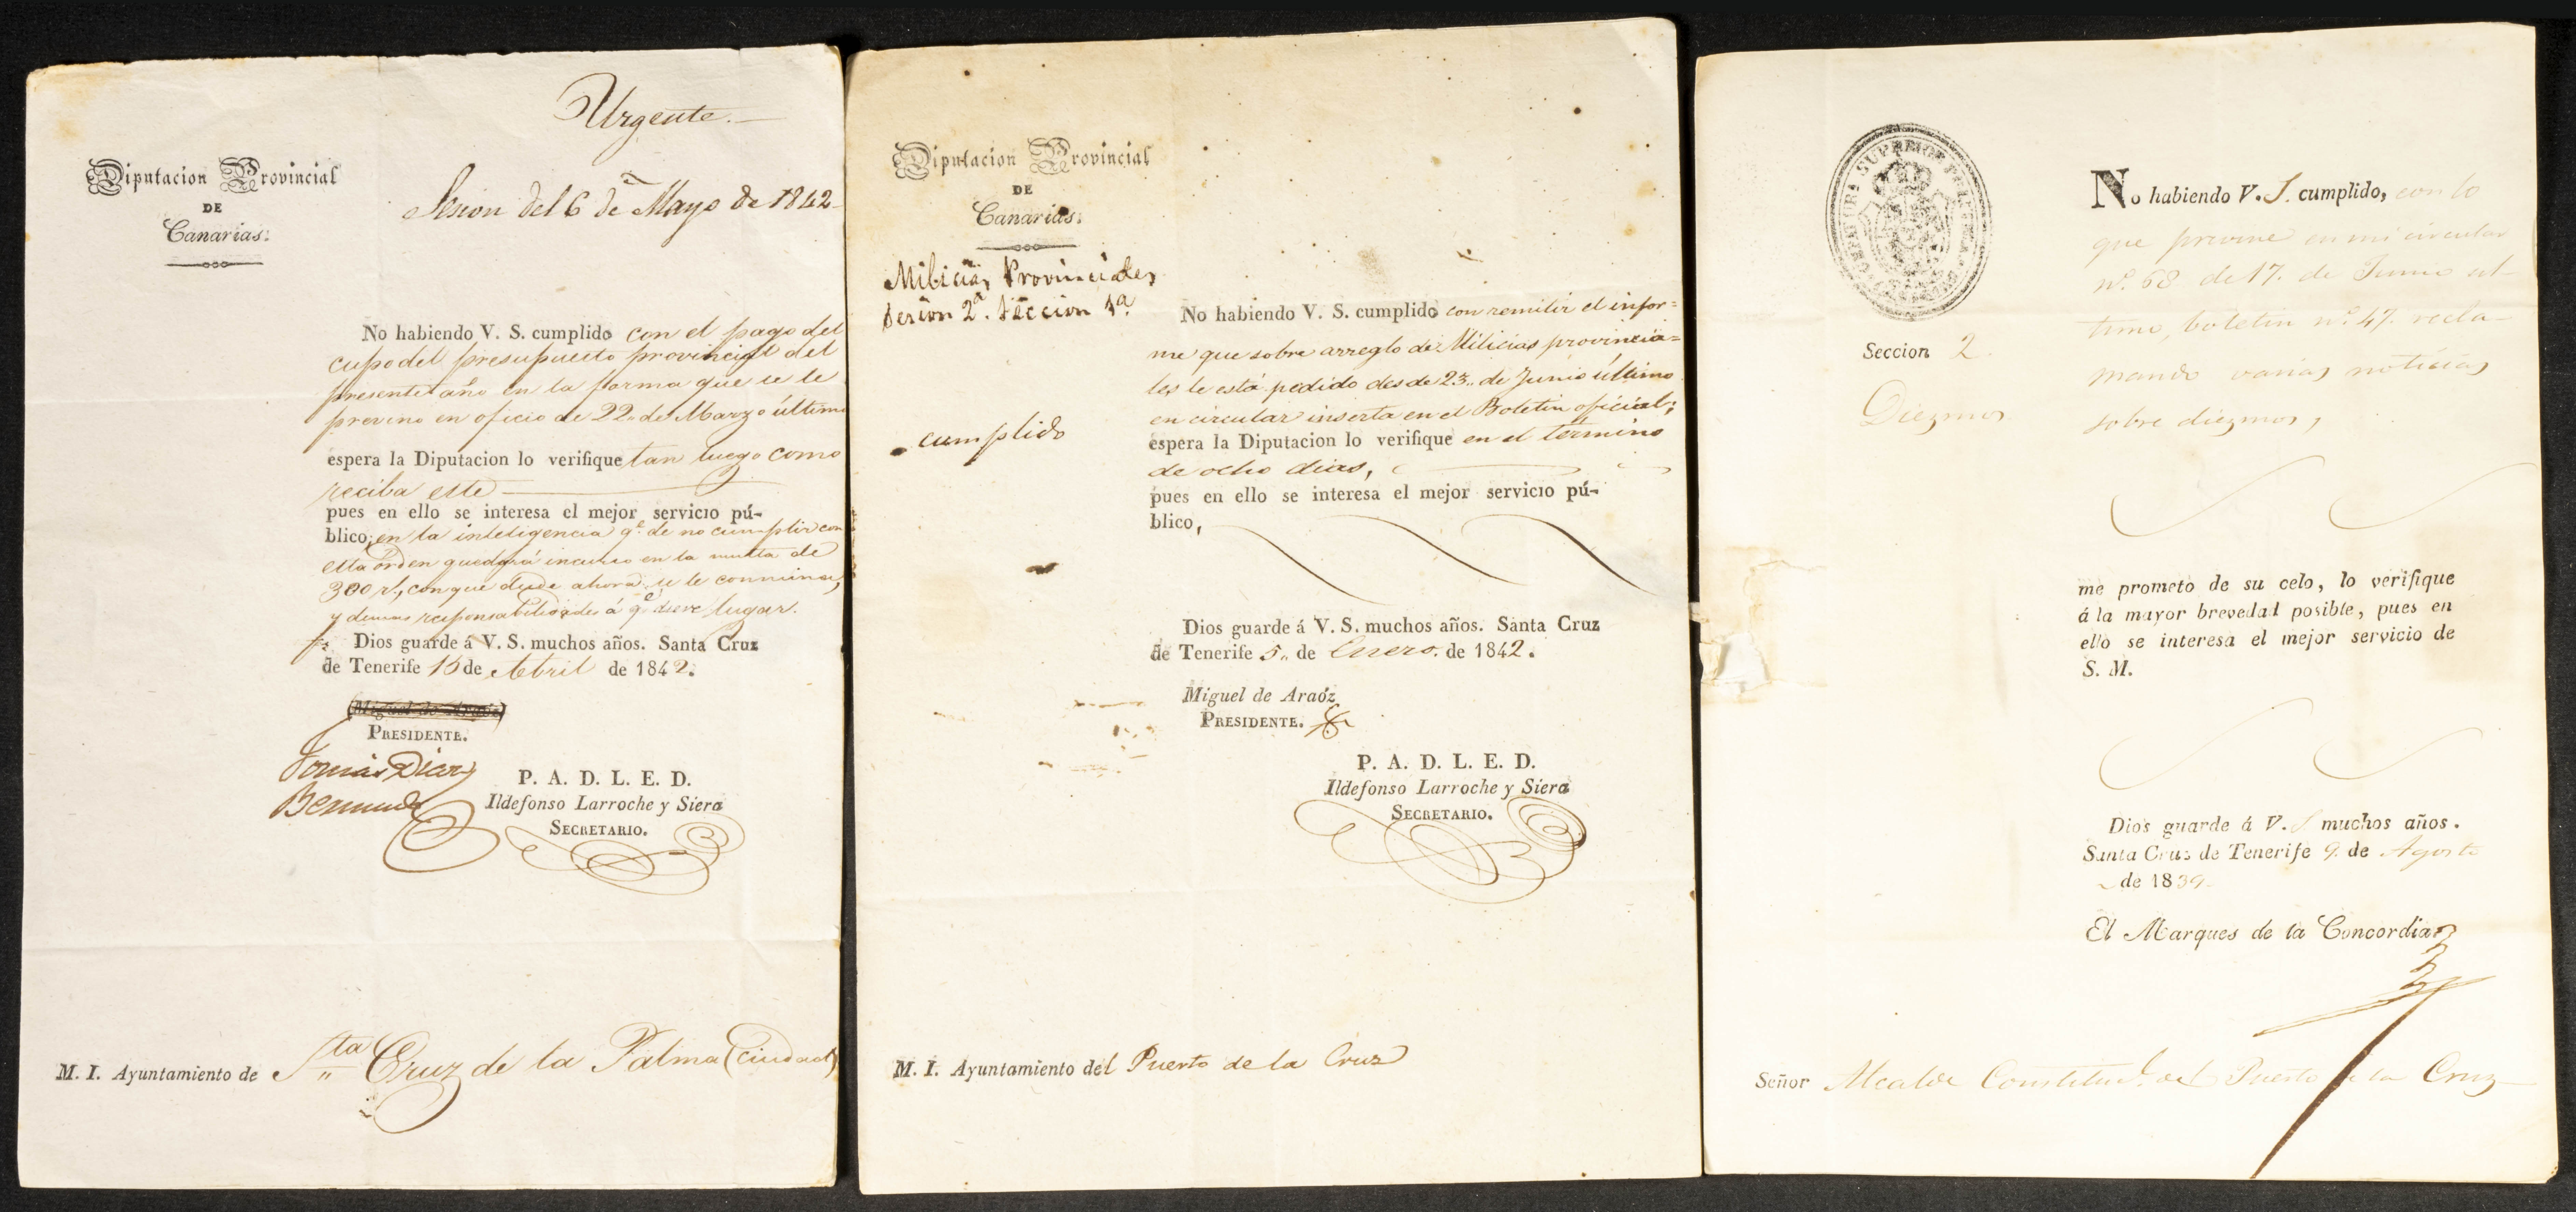 Urgente.
Diputacion Provincial
DE
Canarias.
Sesion del 6 de Mayo de 1842
No habiendo V. S. cumplido con el pago del
cupo del presupuesto provincial del
presente año en la forma que se le
previno en oficio de 22 de Marzo último
espera la Diputacion lo verifique tan luego como
reciba este
pues en ello se interesa el mejor servicio pú-
blico, en la inteligencia qe. de no cumplir con
esta orden quedará incurso en la multa de
300 r., con que desde ahora se le conmina,
y demas responsabilidades á qe. diere lugar.
Dios guarde á V. S. muchos años. Santa Cruz
de Tenerife 16 de Abril de 1842.
PRESIDENTE.
Tomás Diaz
Bermudo
P. A. D. L. E. D.
Ildefonso Larroche y Siera
SECRETARIO.
M. I. Ayuntamiento de Sta Cruz de la Palma (Ciudad)
Diputacion Provincial
DE
Canarias.
Milicias Provinciales
Sesion 2ª. Seccion 1ª.
cumplido
No habiendo V. S. cumplido con remitir el infor=
me que sobre arreglo de Milicias provincia=
les le está pedido desde 23 de Junio último
en circular inserta en el Boletin oficial;
espera la Diputacion lo verifique en el término
de ocho dias,
pues en ello se interesa el mejor servicio pú-
blico,
Dios guarde á V. S. muchos años. Santa Cruz
de Tenerife 5 de Enero de 1842.
Miguel de Araóz
PRESIDENTE.
P. A. D. L. E. D.
Ildefonso Larroche y Siera
SECRETARIO.
M. I. Ayuntamiento del Puerto de la Cruz
Seccion 2.
Diezmos
No habiendo V. S. cumplido, con lo
que previne en mi circular
nº. 68 de 17. de Junio ul-
timo, boletin nº. 47. recla-
mando varias noticias
sobre diezmos,
me prometo de su celo, lo verifique
á la mayor brevedad posible, pues en
ello se interesa el mejor servicio de
S. M.
Dios guarde á V. S muchos años.
Santa Cruz de Tenerife 9. de Agosto
de 1839
El Marques de la Concordia
Señor Alcalde Constitul. del Puerto de la Cruz